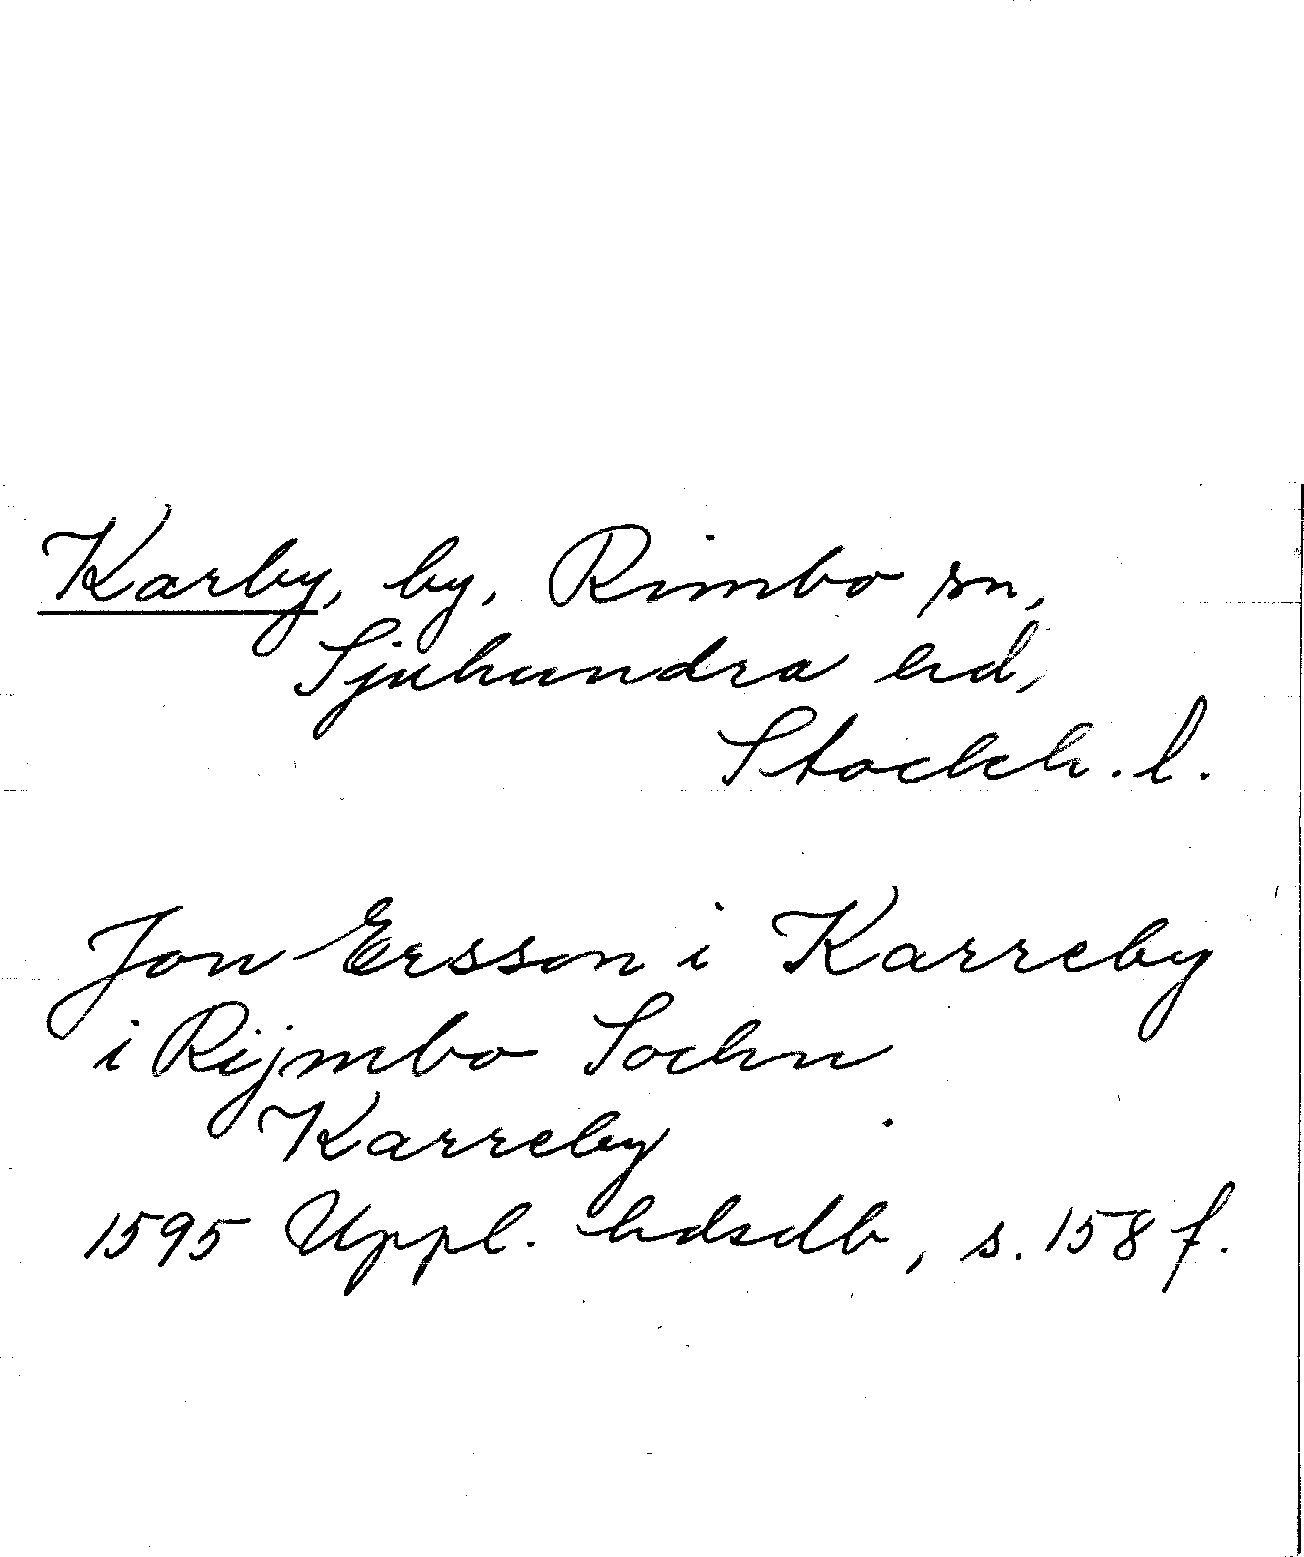 Karby, by, Rimbo sn,
Sjuhundra hd,
Stockh. l.
Jon Ersson i Karreby
i Rijmbo Sochn
Karreby
1595 Uppl. hdsdb, s. 158 f.